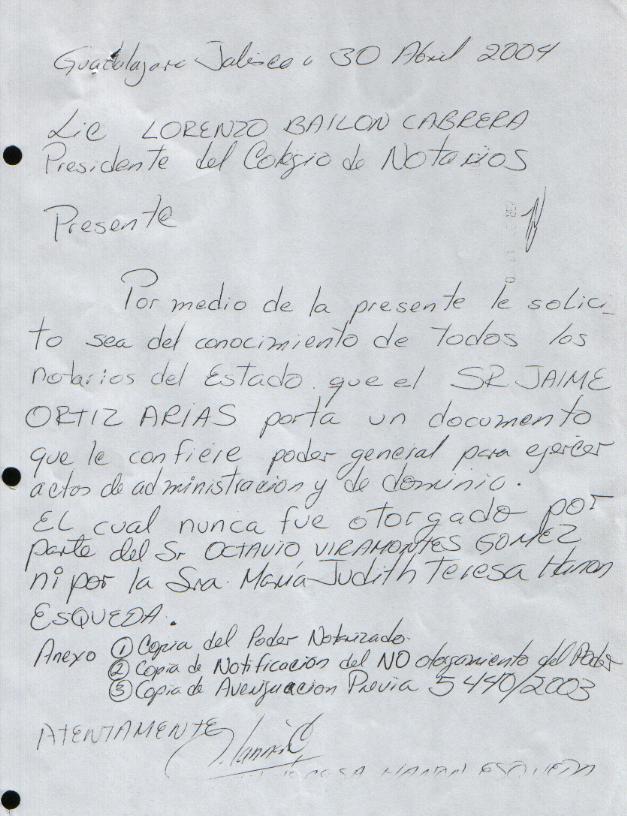 Guadalajara Jalisco a 30 Abril 2004
Lic LORENZO BAILON CABRERA
Presidente del Colegio de Notarios
Presente
Por medio de la presente le solici-
to sea del conocimiento de todos los
notarios del Estado que el SR JAIME
ORTIZ ARIAS porta un documento
que le confiere poder general para ejercer
actos de administracion y de dominio.
EL cual nunca fue otorgado por
parte del Sr OCTAVIO VIRAMONTES GOMEZ
ni por la Sra. María Judith Teresa Hanon
ESQUEDA.
Anexo ① Copia del Poder Notarizado.
② Copia de Notificacion del NO otorgamiento del Poder
③ Copia de Averiguacion Previa 5440/2003
ATENTAMENTE
ESQUEDA